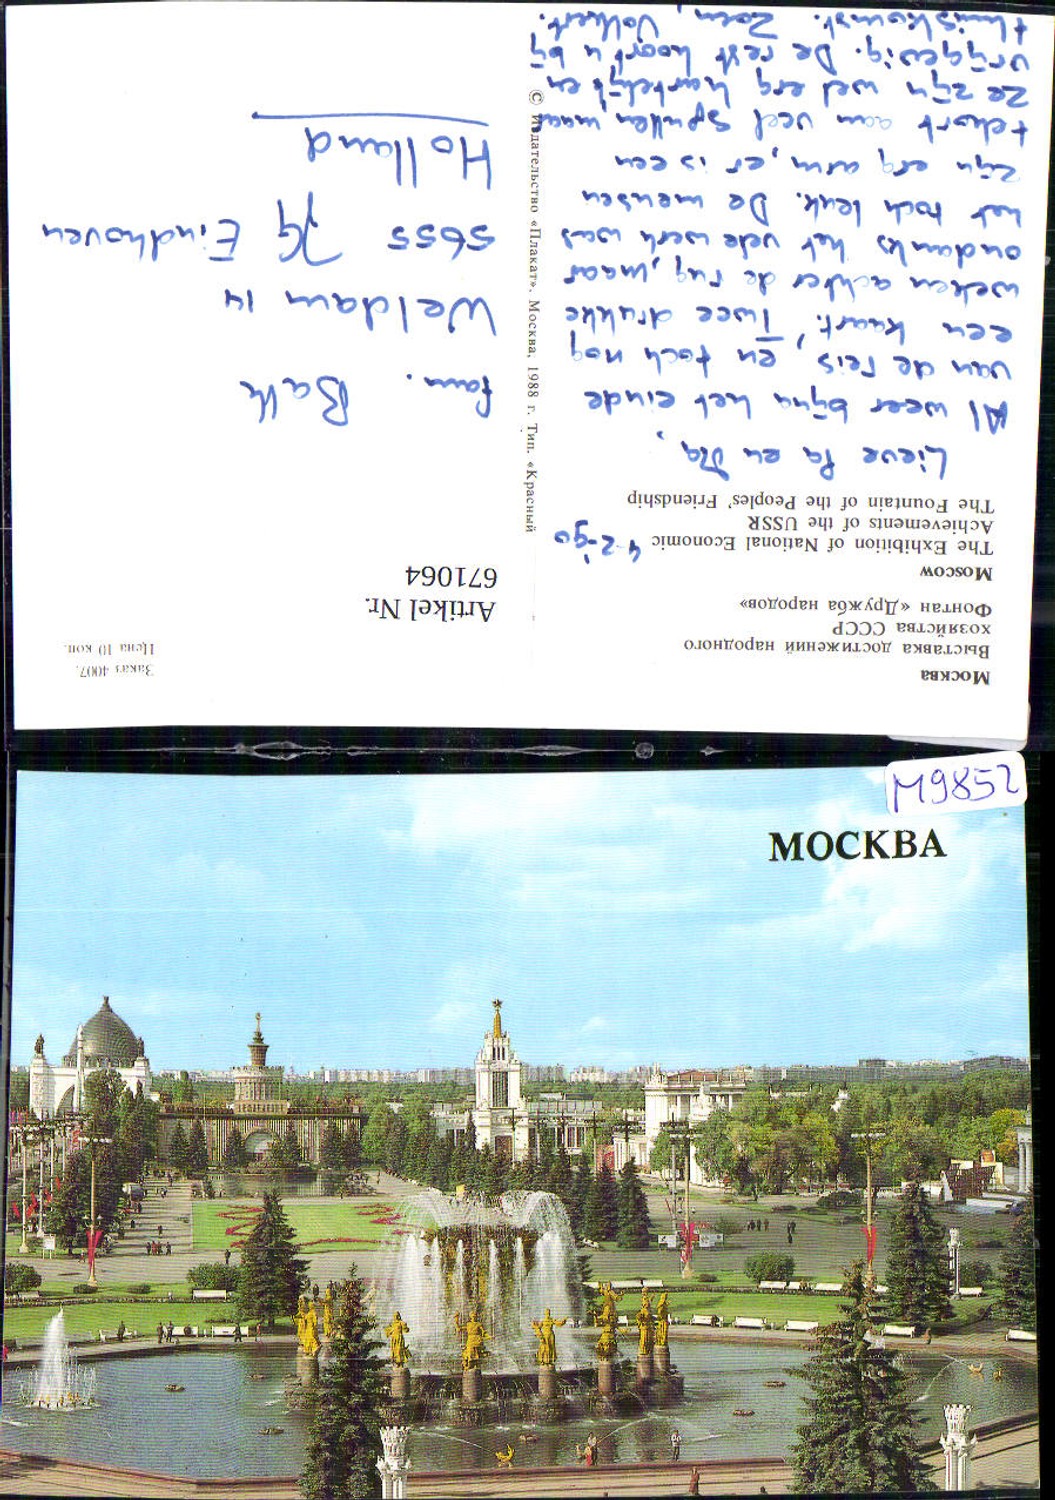 Москва
Выставка достижений народного
хозяйства СССР
Фонтан «Дружба народов»
Moscow
The Exhibition of National Economic
Achievements of the USSR
The Fountain of the Peoples' Friendship
4-2-'90
Lieve Pa en Ma,
Al weer bijna het einde
van de reis, en toch nog
een kaart. Twee drukke
weken achter de rug, maar
ondanks het vele werk was
het toch leuk. De mensen
zijn erg arm, er is een
tekort aan veel spullen maar
ze zijn wel erg hartelijk en
vrijgevig. De rest hoort u bij
thuiskomst. Zoen, Volkert.
© Издательство «Плакат». Москва, 1988 г. Тип. «Красный
Заказ 4007.
Цена 10 коп.
Artikel Nr.
671064
fam. Balk
Weldam 14
5655 JG Eindhoven
Holland
M9852
МОСКВА